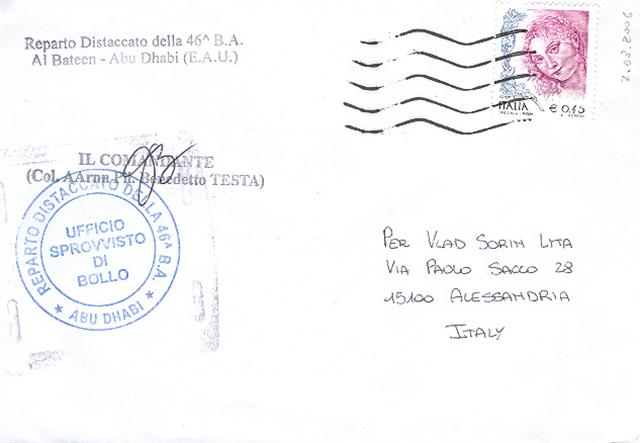 Reparto Distaccato della 46^ B.A.
Al Bateen - Abu Dhabi (E.A.U.)
7.02.2006
ITALIA
€ 0,45
IL COMANDANTE
(Col. AArnn Pil. Benedetto TESTA)
REPARTO DISTACCATO DELLA 46ª B.A.
UFFICIO
SPROVVISTO
DI
BOLLO
* ABU DHABI *
PER VLAD SORIN LITA
VIA PAOLO SACCO 28
15100 ALESSANDRIA
ITALY